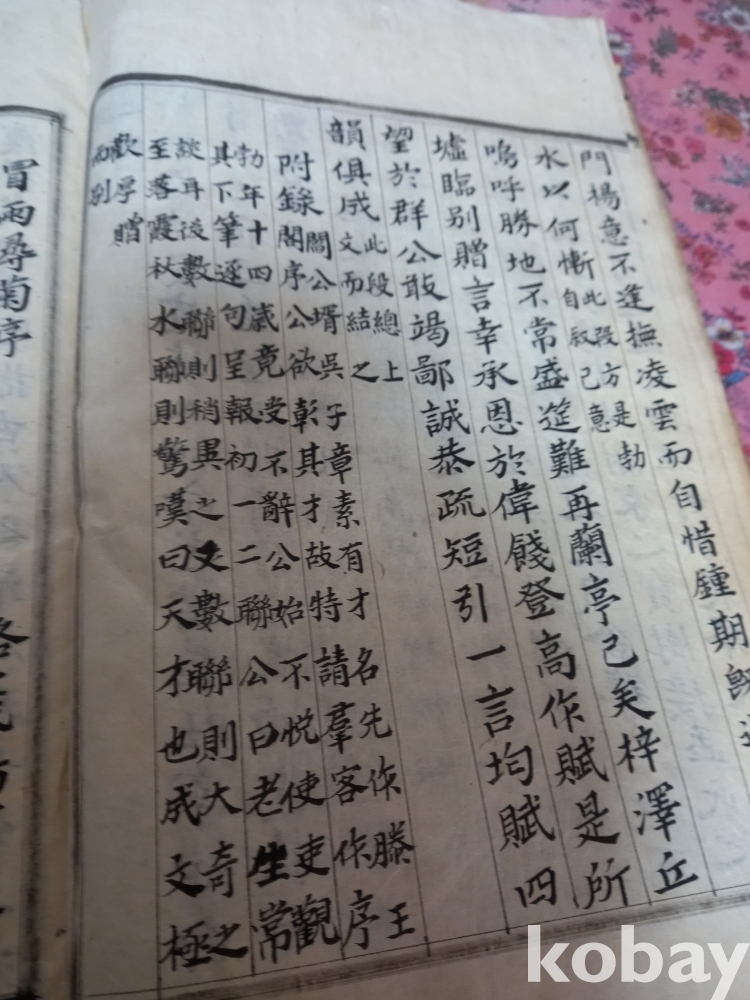 門楊意不逢撫凌雲而自惜鍾期既
水以何慚
此段方是勃
自叙己意
嗚呼勝地不常盛筵難再蘭亭已矣梓澤丘
墟臨別贈言幸承恩於偉餞登高作賦是所
望於群公敢竭鄙誠恭疏短引一言均賦四
韻俱成
此段總上
文而結之
附錄
閻公壻吳子章素有才名先作滕王
閣序公欲彰其才故特請羣客作序
勃年十四歲竟受不辭公始不悅使吏觀
其下筆逐句呈報初一二聯公曰老生常
談耳後數聯則稍異之又數聯則大奇之
至落霞秋水聯則驚嘆曰天才也成文極
歡厚贈
而別
冒雨尋菊序
kobay